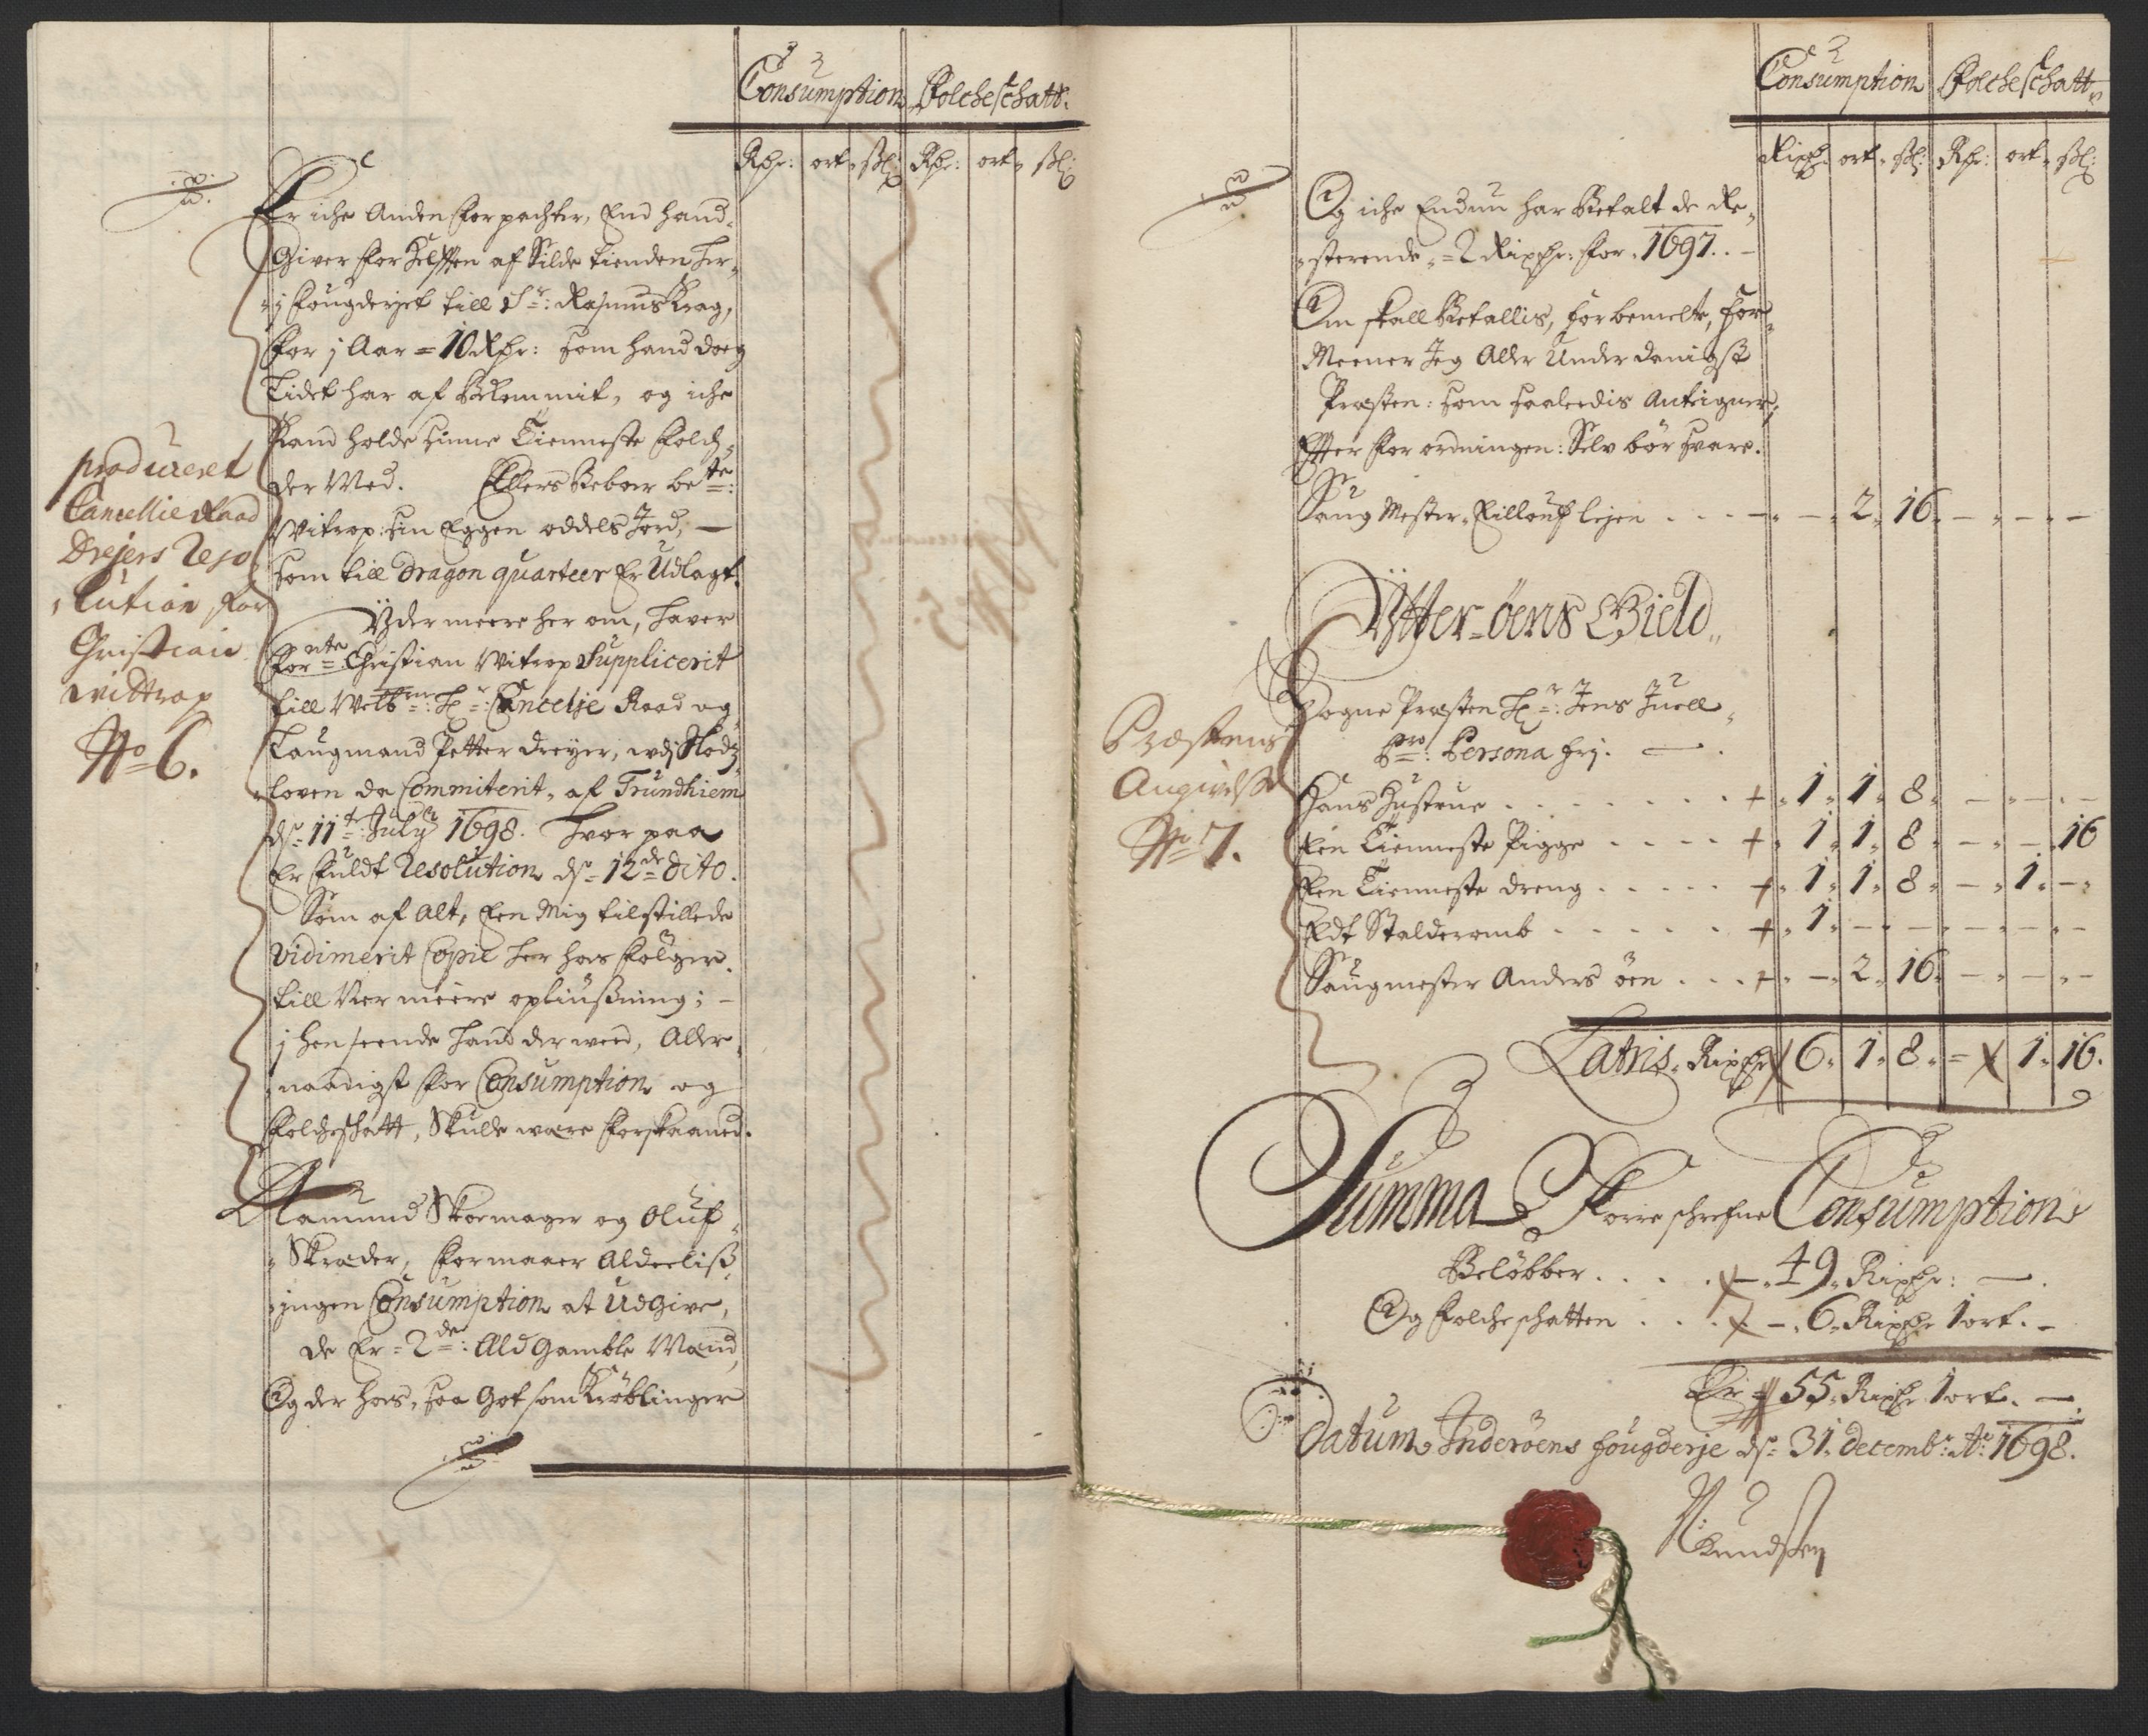 Consumption Folcheschatt.
Rdr: ort. sk: Rdr: ort. sk:
Er iche Anden Forpachter, End hand
Giver for Helfften af Silde tienden her
j fougderjet till Sr: Rasmus Krag,
for j Aar = 10 Rdr: som hand dog
Tidt har af Beklemmit, og iche
Kand holde sinne Tienneste folch
der Med. Ellers Beboer bete:
Witrop: sin Eggen oddels Jord, —
som till Dragon quarteer Er Udlagt.
Yder meere her om, haver
Fornte Christian Witrop Suppliceret
till Welbrne: Hr: Cancelje Raad og
Laugmand Petter Dreyer, wdj Slodz
loven da Committerit, af Trundhiem
ds: 11t: July 1698. Hvor paa
Er fuldt Resolution ds: 12de dito.
Som af Alt, Een Mig tilstillede
Vidimerit Copie her hos følger
till Vier meere opliußning; —
j hen seende hand der med, Aller
naadigst for Consumption og
Folcheschatt, Skulde være forskaaned.
Produceret
Cancellie Raad
Drejers Reso
lution, for
Christian
Wittrop
No 6.
Aamund Skoemager og Oluf
Skræder, formaaer Aldeeliß
jngen Consumption at Udgive,
de Er = 2de: Ald Gamble Mænd
Og der hos, saa Got som Krøblinger
Consumption Folcheschatt
Rixdr: ort. sk: Rdr: ort. sk:
Og iche Endnu har Betalt de Re
sterende = 2 Rixdr: for. 1697. . —
Om skall Betallis, forbemelte, for
Meener Jeg Aller Underdanigst
Præsten: som saaledis Antegner,
Effter forordningen: Selv bør svare.
Saug Mester. . . . — . — . 2. 16. — . — . —
Ytter-øens Gield
Sogne Præsten Hr: Jens Juell
pro: Persona frj. — .
Præstens
Angivelse
No 7.
Hans Hustrue . . . . . . . + . 1. 1. 8. — . — . —
Een Tienneste Pigge . . . . + . 1. 1. 8. — . — . 16
Een Tienneste dreng . . . . . + . 1. 1. 8. — . 1. — .
Edt Stalderomb . . . . . . + . 1. — . — . — . — . —
Saugmester Anders øen . . . + . — . 2. 16. — . — . —
Latris. Rixdr 6. 1. 8. = 1. 16.
Summa Forre schrefne Consumption
Beløbber. . . . . — . 49. Rixdr: — .
Og Folcheschatten . . . . — . 6. Rixdr 1 ort. —
Er = 55. Rixdr 1 ort. — .
Datum Inderøens fougderje ds: 31. decembr: Ao: 1698.
Knudsen